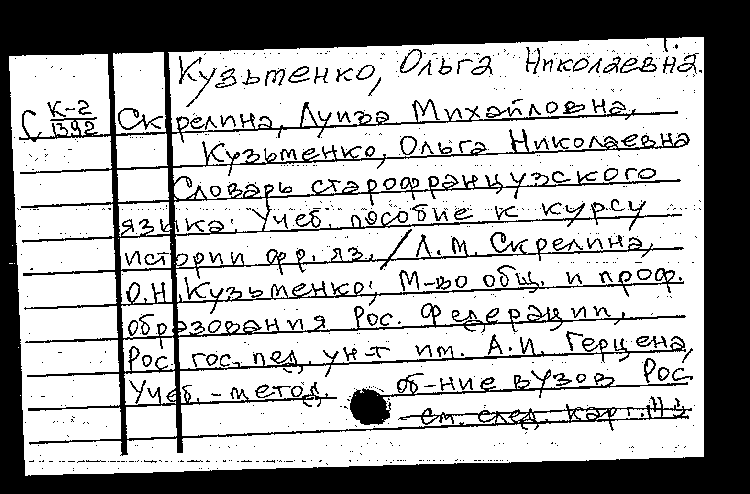 1.
Кузьменко, Ольга Николаевна.
С К-2/1392 Скрелина, Луиза Михайловна,
Кузьменко, Ольга Николаевна
Словарь старофранцузского
языка: Учеб. пособие к курсу
истории фр. яз. / Л.М. Скрелина,
О.Н. Кузьменко; М-во общ. и проф.
образования Рос. Федерации,
Рос. гос. пед. ун-т им. А.И. Герцена,
Учеб.-метод. об-ние вузов Рос
см. след. карт.